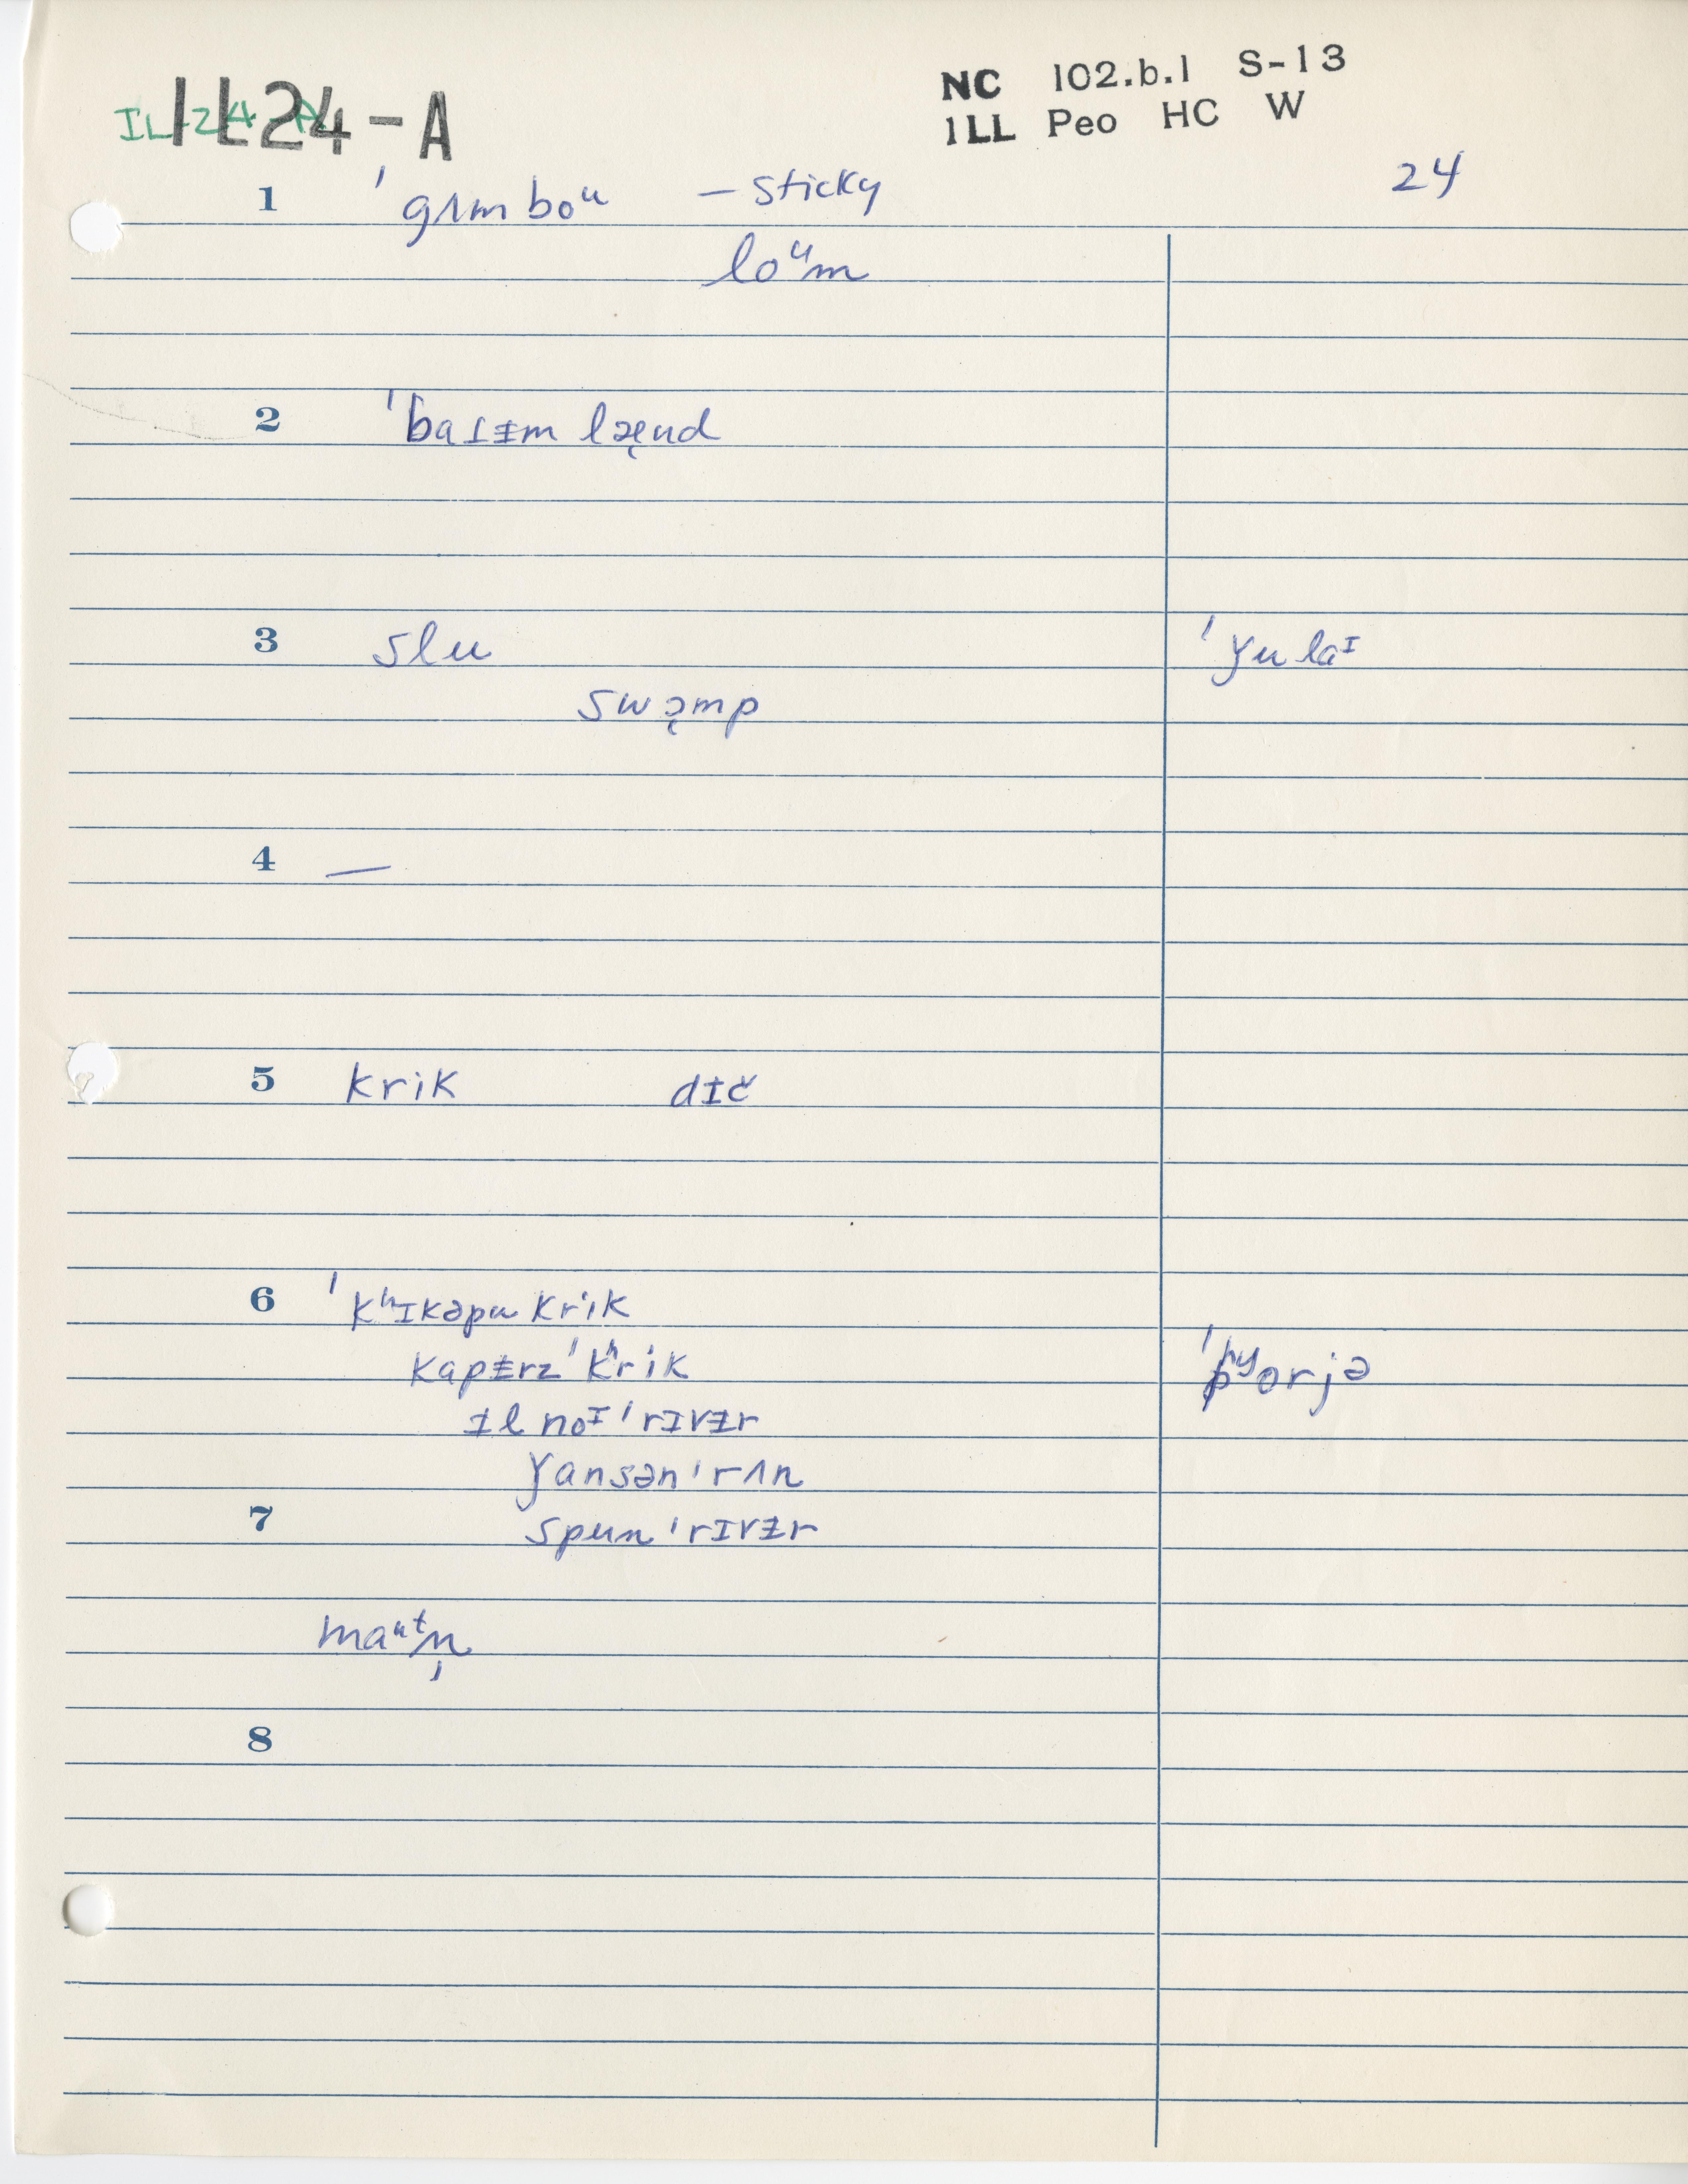 IL 24 A
ILL24-A
NC 102.b.1 S-13
ILL Peo HC W
24
1 ˈgʌmboᵘ — sticky
loᵘm
2 ˈbaɪᵻm lænd
3 slu ˈyulaᴵ
swɑmp
4 —
5 krik dɪč
6 ˈkʰɪkəpu krik
kapᵻrz ˈkʰrik
ɪl noᴵ ˈrɪvᵻr ˈpʰʸorjə
yansən ˈrʌn
7 spun ˈrɪvᵻr
maᵘᵗn̩
8